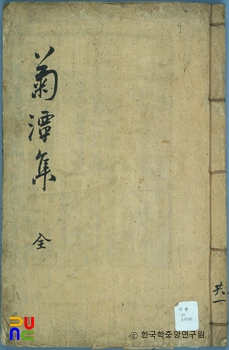 菊潭集
全
共一
© 한국학중앙연구원